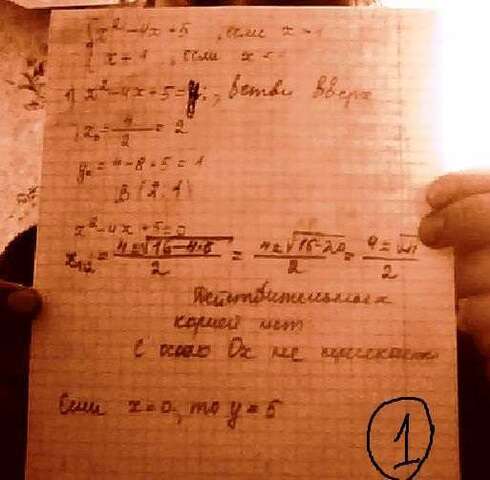 { x² - 4x + 5 , если x
x + 1 , если x
1) x² - 4x + 5 = y ; , ветви вверх
x₀ = 4/2 = 2
y₀ = 4 - 8 + 5 = 1
B (2, 1)
x² - 4x + 5 = 0
x₁,₂ = (4 ± √(16 - 4·5))/2 = (4 ± √(16 - 20))/2 = (4 ±
Действительных
корней нет
С осью Ox не пересекается
Если x = 0, то y = 5
1